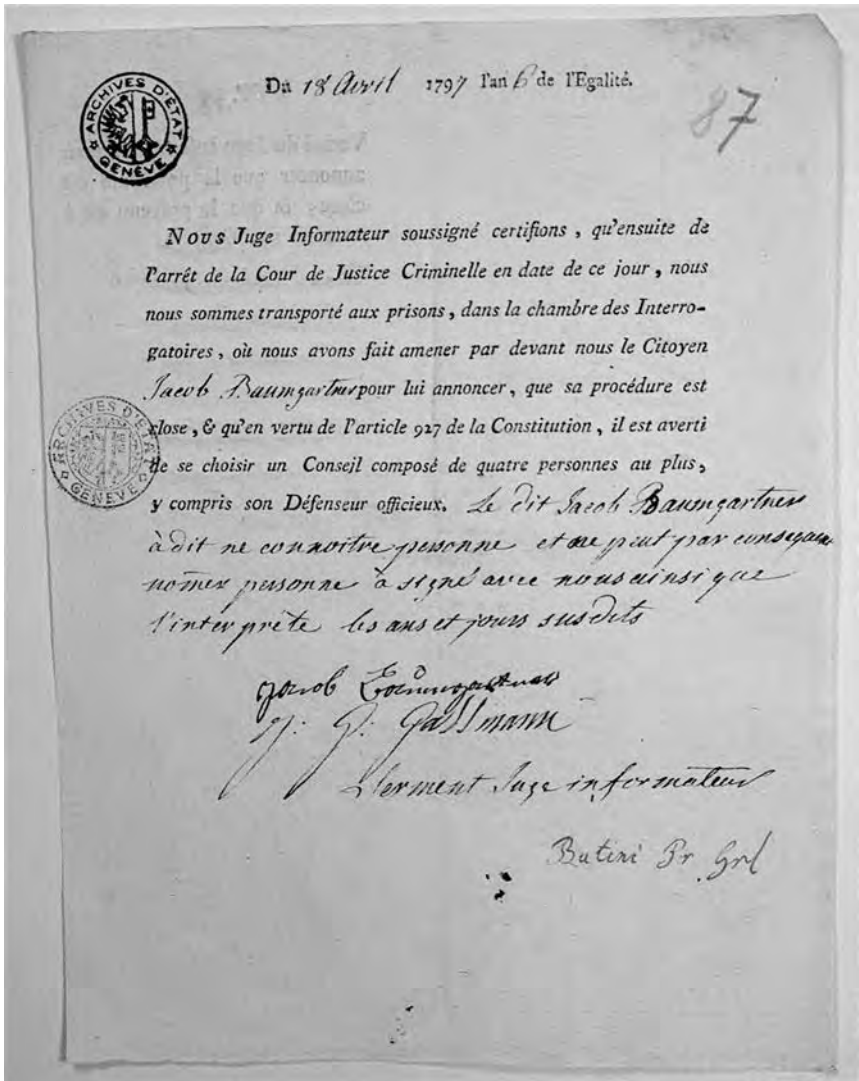 ARCHIVES D'ÉTAT
GENÈVE
Du 18 Avril 1797 l'an 6 de l'Egalité.
87
Nous Juge Informateur soussigné certifions, qu'ensuite de
l'arrêt de la Cour de Justice Criminelle en date de ce jour, nous
nous sommes transporté aux prisons, dans la chambre des Interro-
gatoires, où nous avons fait amener par devant nous le Citoyen
Jacob Baumgartner pour lui annoncer, que sa procédure est
close, & qu'en vertu de l'article 927 de la Constitution, il est averti
de se choisir un Conseil composé de quatre personnes au plus,
ARCHIVES D'ÉTAT
GENÈVE
y compris son Défenseur officieux. Le dit Jacob Baumgartner
à dit ne connoitre personne et ne peut par consequent
nomer personne à signé avec nous ainsi que
l'interprête les ans et jours susdits
Jacob Baumgartner
J: G: Gallmann
Juge informateur
Butini Pr Grl